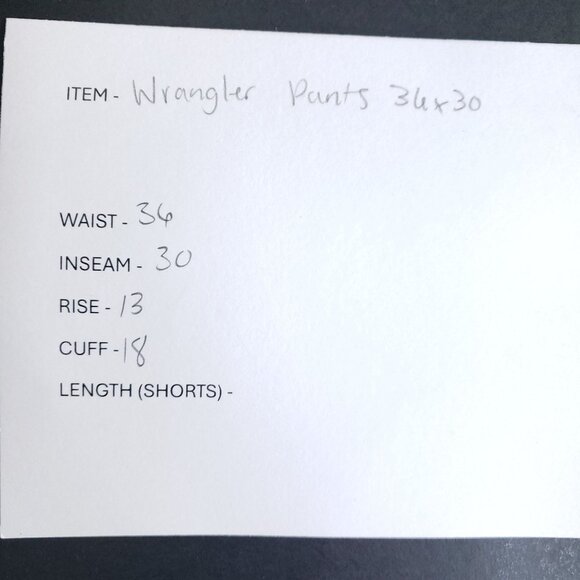 ITEM - Wrangler Pants 36x30
WAIST - 36
INSEAM - 30
RISE - 13
CUFF - 18
LENGTH (SHORTS) -